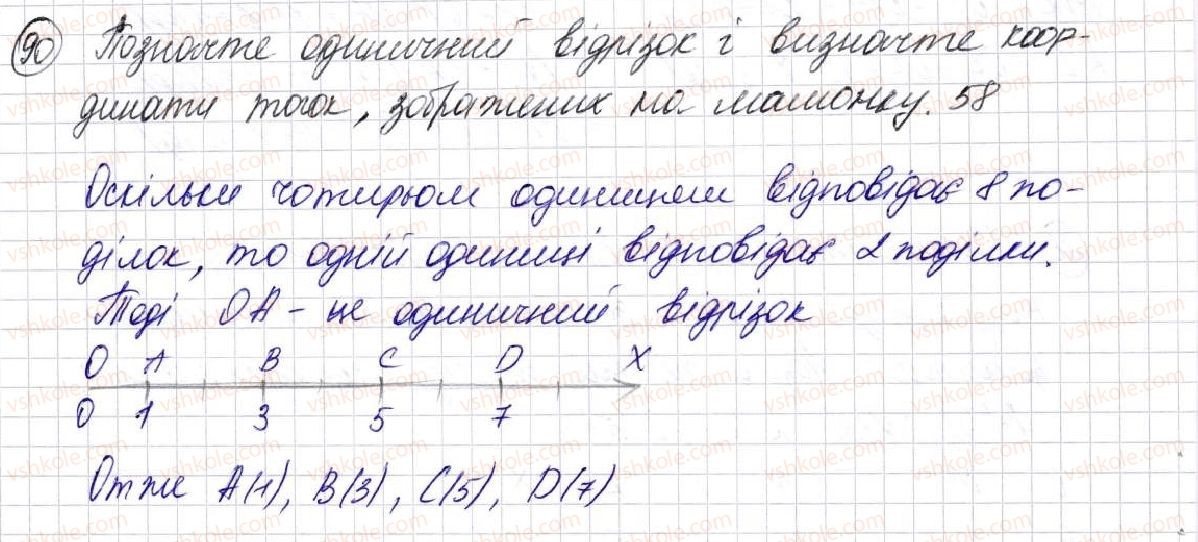 90 Позначте одиничний відрізок і визначте коор-
динати точок, зображених на малюнку. 58
Оскільки чотирьом одиницям відповідає 8 по-
ділок, то одній одиниці відповідає 2 поділки.
Тоді OA - це одиничний відрізок
O A B C D X
0 1 3 5 7
Отже A(1), B(3), C(5), D(7)